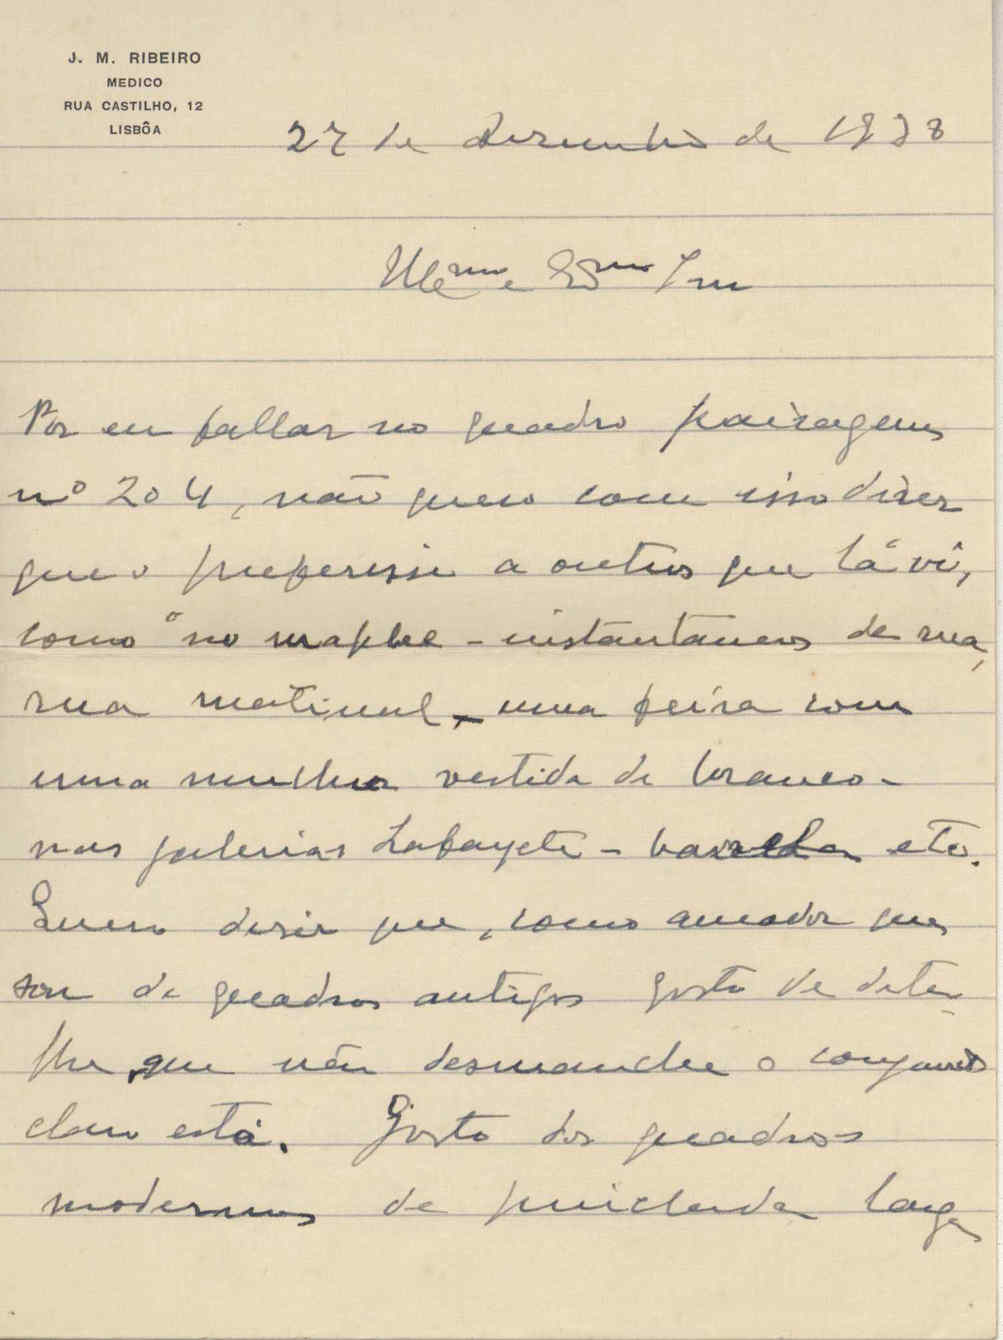 J. M. RIBEIRO
MEDICO
RUA CASTILHO, 12
LISBÔA
27 de Dezembro de 1938
Illmo e Exmo Snr
Por eu fallar no quadro paizagem
nº 204, não quero com isso dizer
que o preferisse a outros que lá vi,
como "no maple - instantaneos de rua,
rua matinal - uma feira com
uma mulher vestida de branco -
nas galerias Lafayete - etc.
Quero dizer que, como amador que
sou de quadros antigos gosto de deta-
lhe que não desmanche o conjuncto
claro está. Gosto dos quadros
modernos de pincelada larga